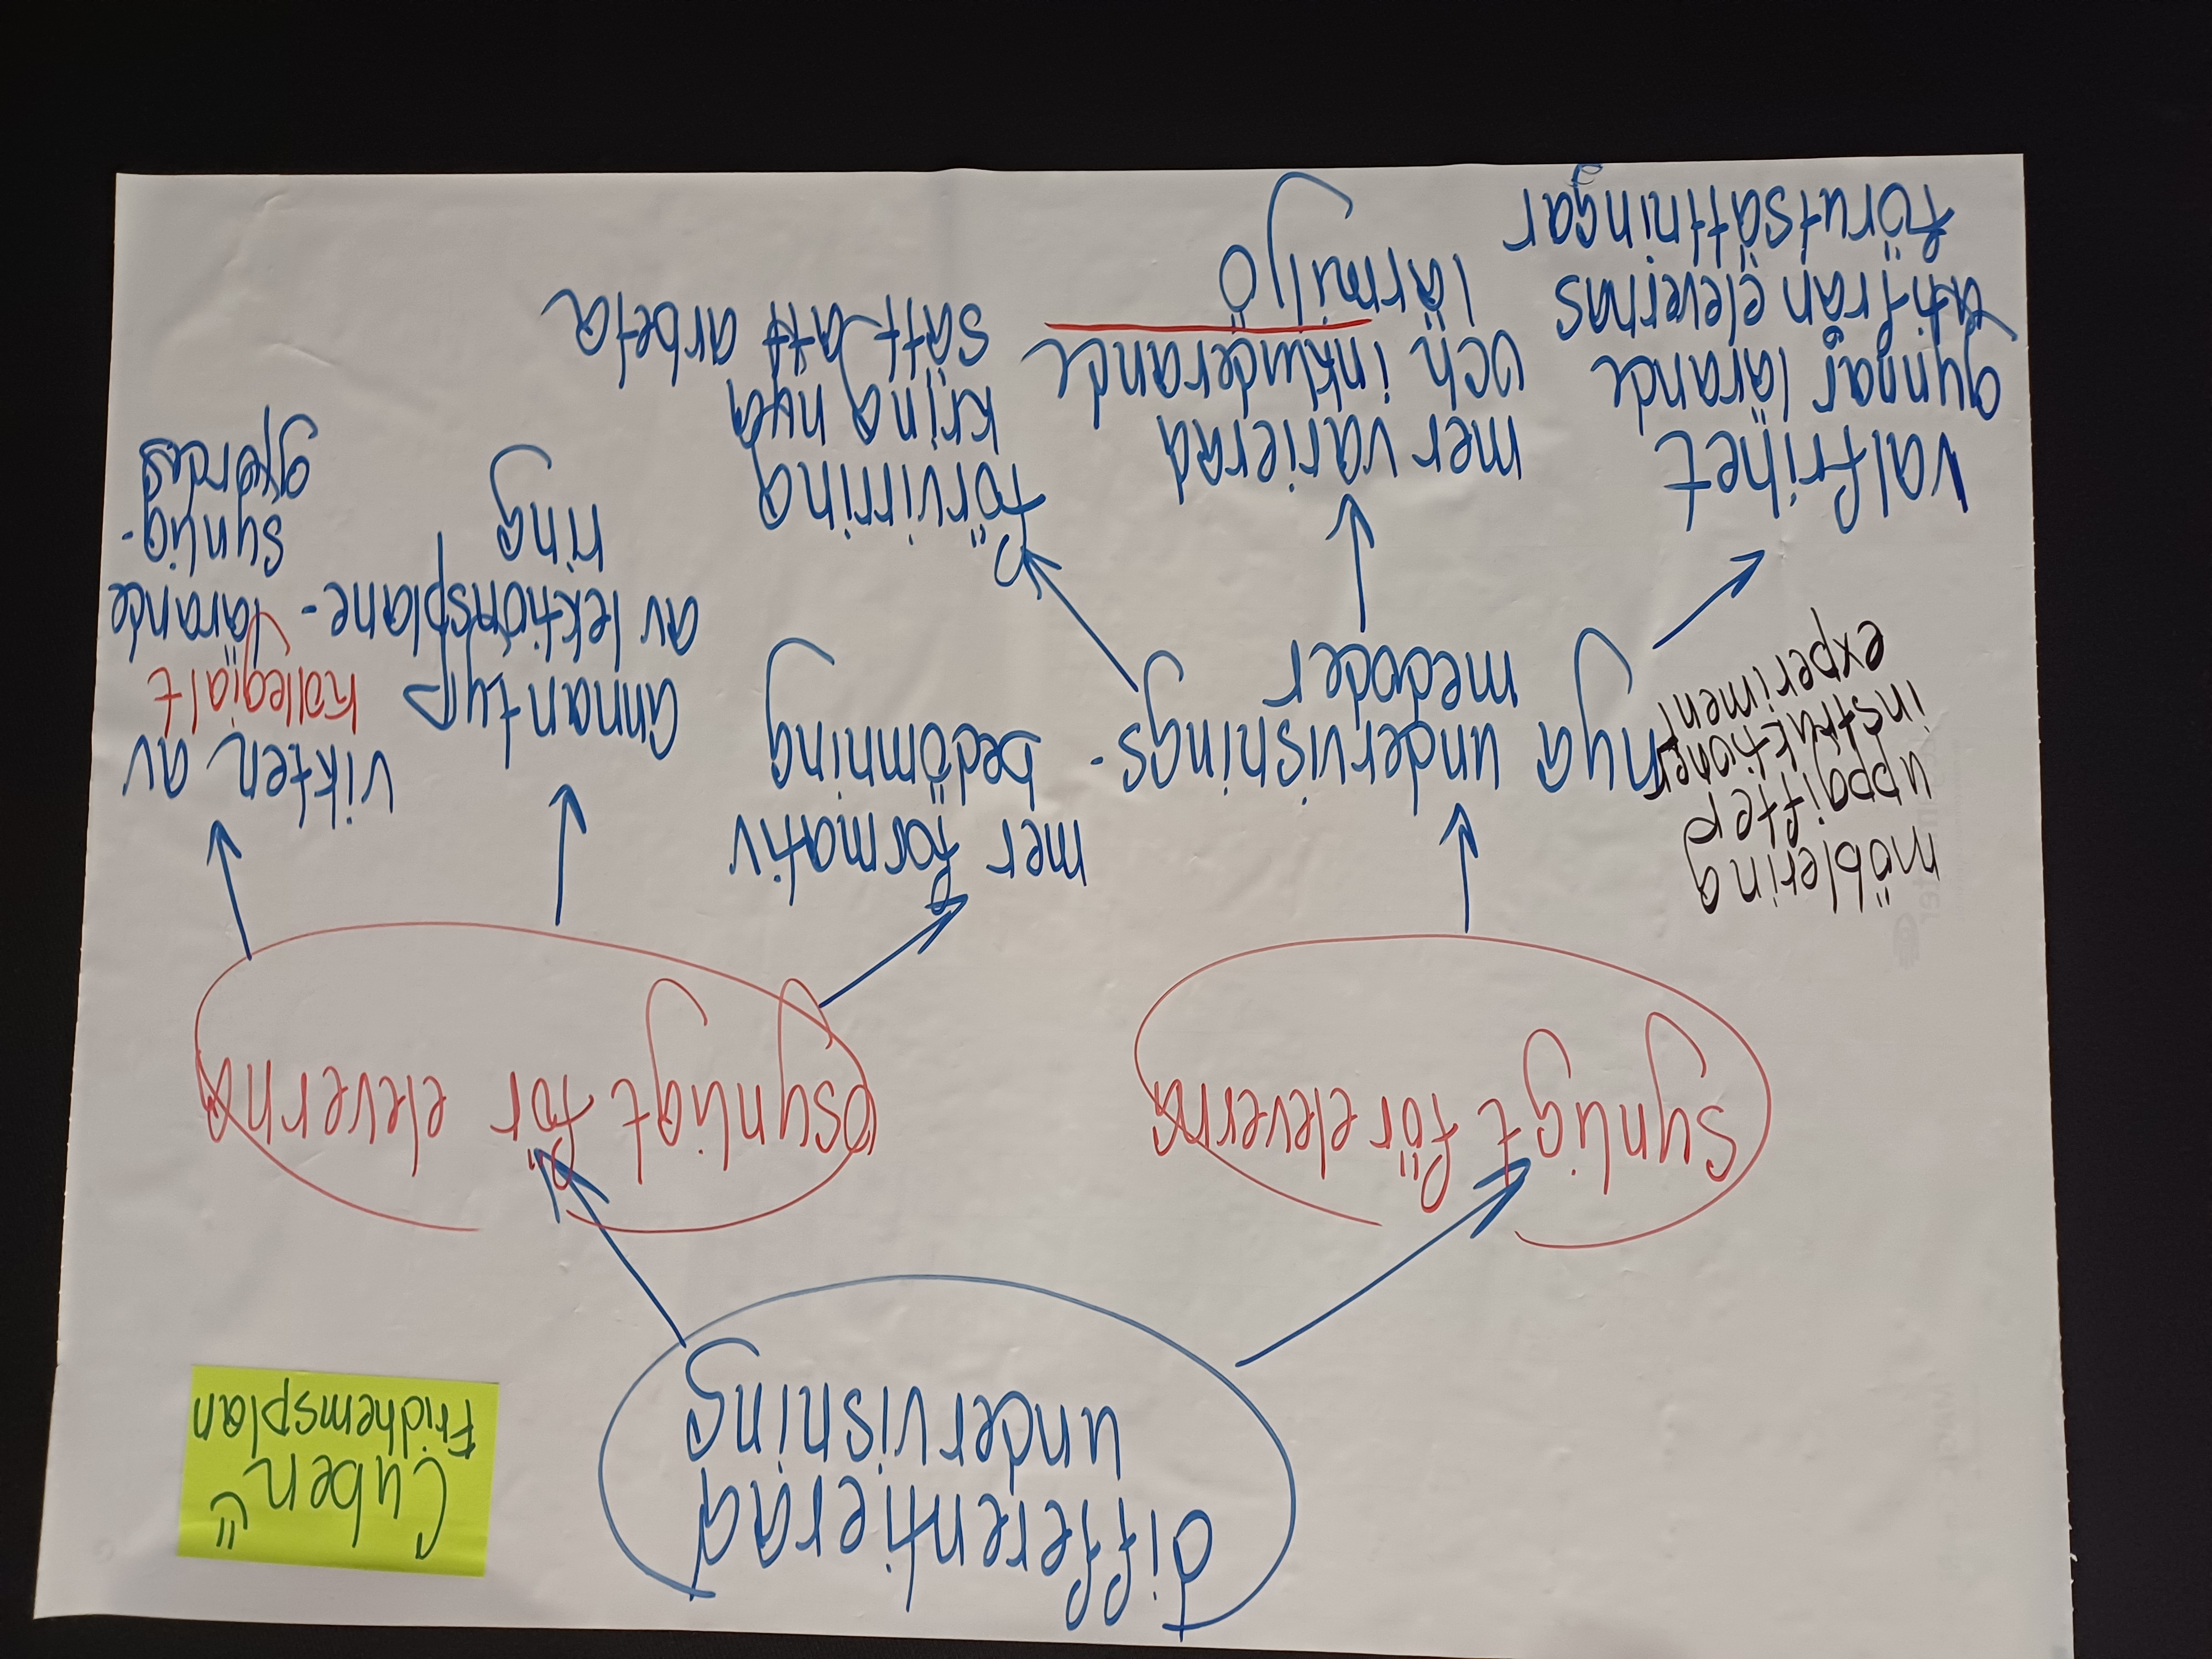 differentierad
undervisning
Cuben
Fridhemsplan
synligt för eleverna
osynligt för eleverna
möblering
uppgifter
instruktioner
experiment
nya undervisnings-
medoder
valfrihet
gynnar lärande
utifrån elevernas
förutsättningar
mer varierad
och inkluderande
lärmiljö
förvirring
kring nya
sätt att arbeta
mer formativ
bedömning
annan typ
av lektionsplane-
ring
vikten av
kollegialt
lärande
synlig-